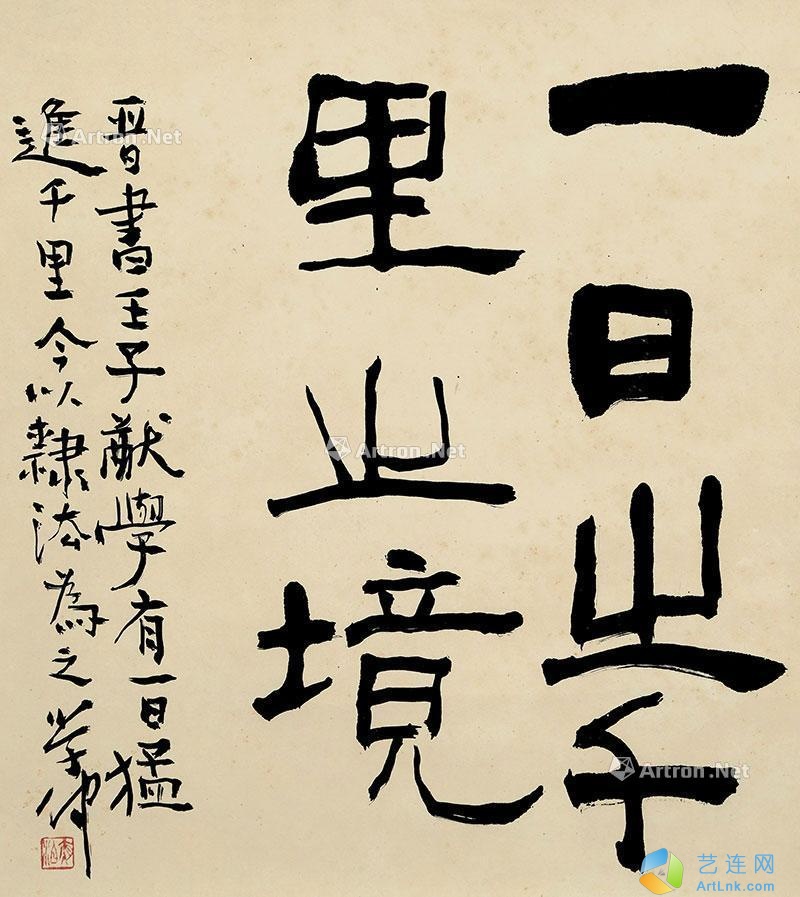 一日之千
里之境
晋書王子猷學有一日猛
進千里今以隸法為之学仲
Artron.Net
Artron.Net
Artron.Net
Artron.Net
艺连网
ArtLnk.com